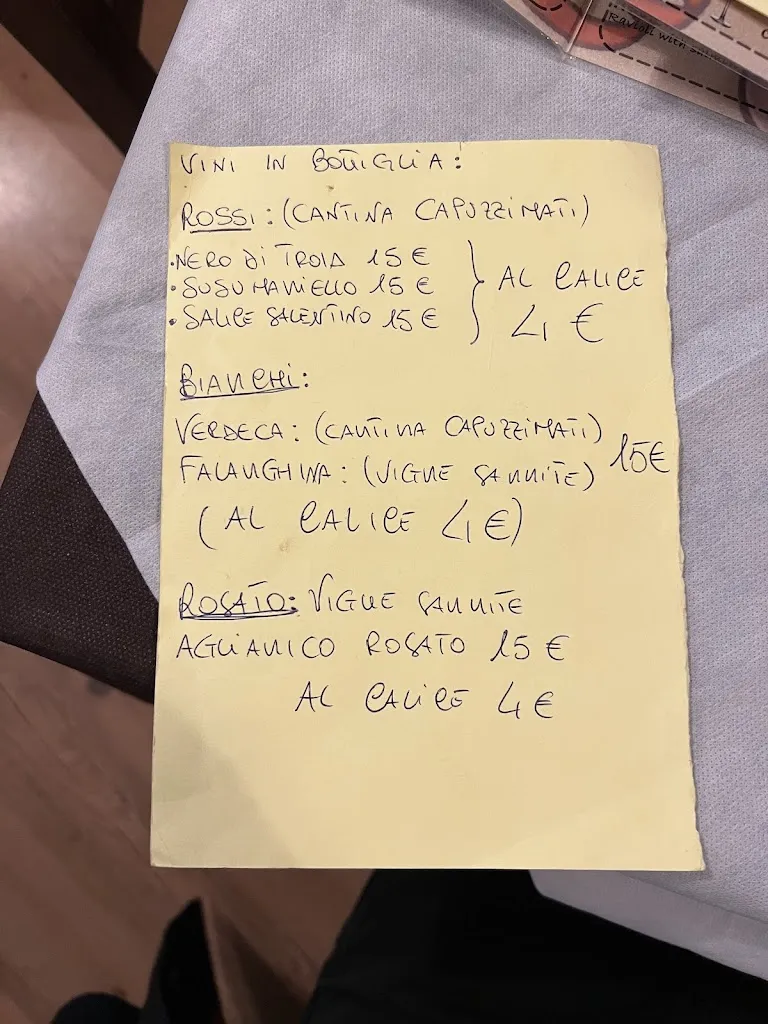 Ravioli with
VINI IN BOTTIGLIA:
ROSSI: (CANTINA CAPUZZIMATI)
• NERO DI TROIA 15 €
• SUSUMANIELLO 15 €
• SALICE SALENTINO 15 €
} AL CALICE
4 €
BIANCHI:
VERDECA: (CANTINA CAPUZZIMATI)
FALANGHINA: (VIGNE SANNITE) 15€
(AL CALICE 4€)
ROSATO: VIGNE SANNITE
AGLIANICO ROSATO 15 €
AL CALICE 4 €